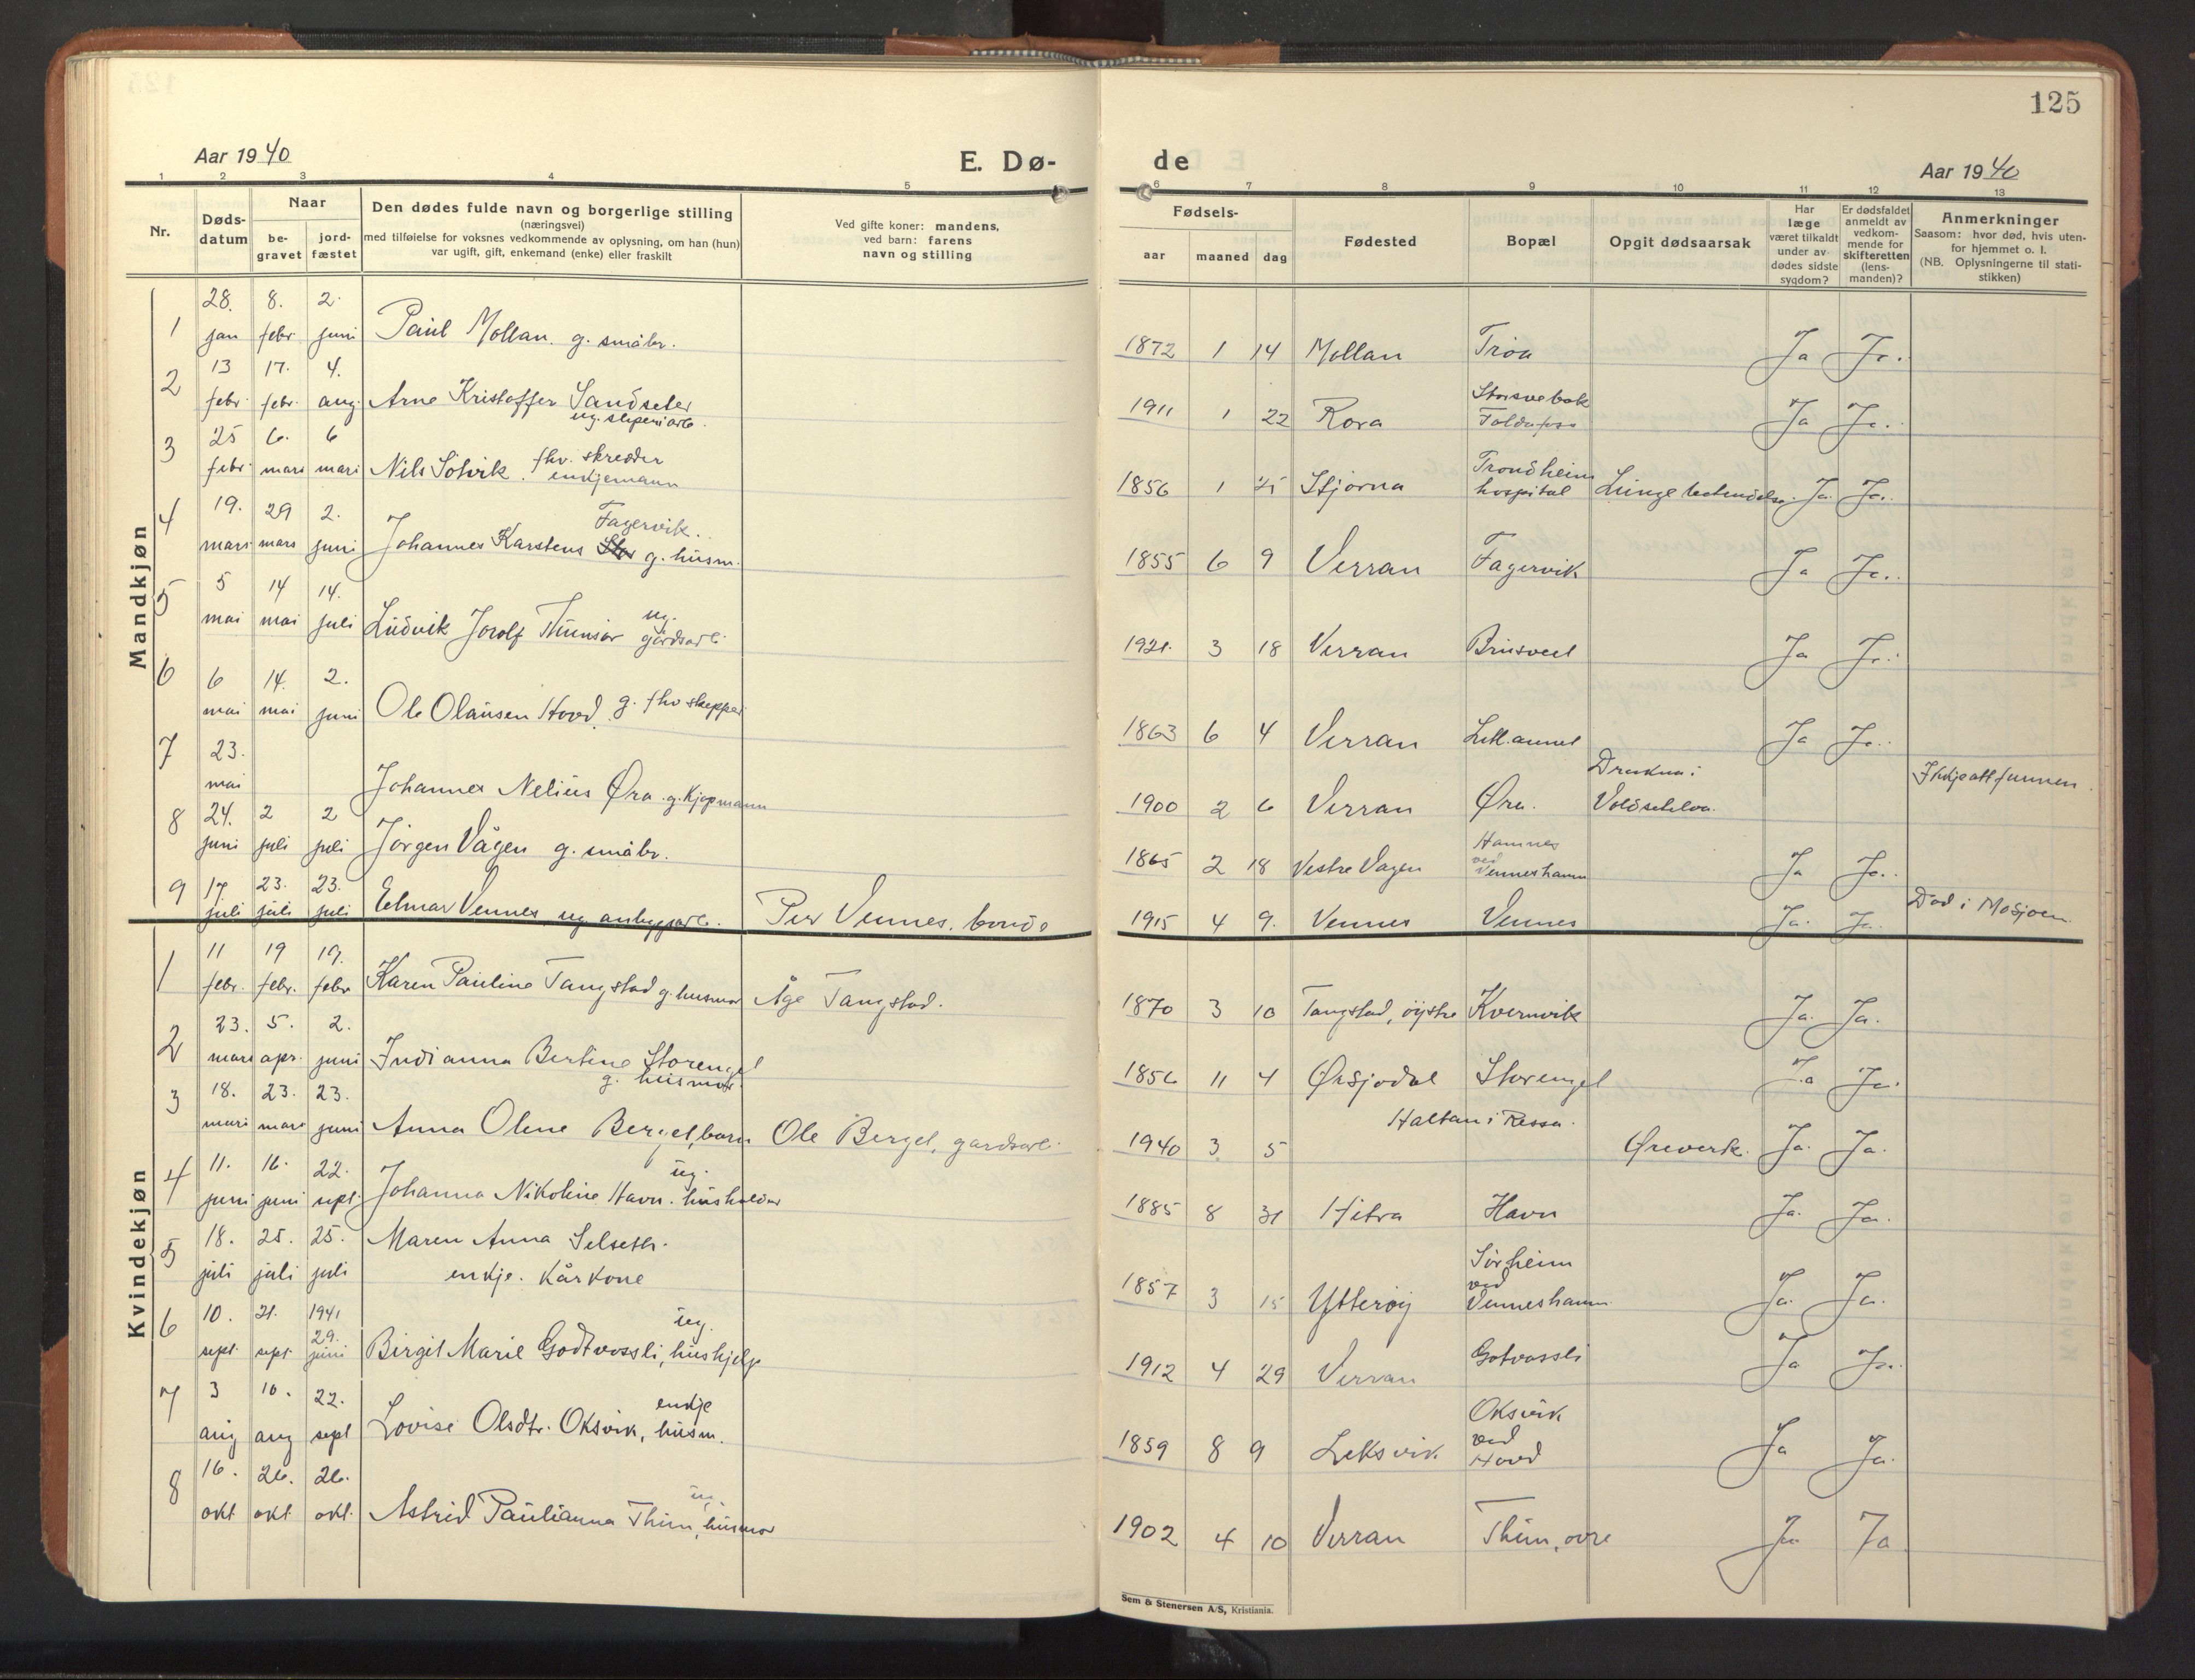 125
Aar 1940
E. Dø-
de
Aar 1940
1 2 3 4 5 6 7 8 9 10 11 12 13
Nr.
Døds-
datum
Naar
be-
gravet
jord-
fæstet
Den dødes fulde navn og borgerlige stilling
(næringsvei)
med tilføielse for voksnes vedkommende av oplysning, om han (hun)
var ugift, gift, enkemand (enke) eller fraskilt
Ved gifte koner: mandens,
ved barn: farens
navn og stilling
Fødsels-
aar maaned dag
Fødested
Bopæl
Opgit dødsaarsak
Har
læge
været tilkaldt
under av-
dødes sidste
sygdom?
Er dødsfaldet
anmeldt av
vedkom-
mende for
skifteretten
(lens-
manden)?
Anmerkninger
Saasom: hvor død, hvis uten-
for hjemmet o. l.
(NB. Oplysningerne til stati-
stikken)
Mandkjøn
1 28. jan 8. febr 2. juni Paul Mollan. g. småbr. 1872 1 14 Mollan Trøa Ja Ja.
2 13 febr. 17. febr. 4. aug. Arne Kristoffer Sandseter
ug. sliperiarb. 1911 1 22 Rora Ja Ja.
3 25 febr. 6. mars 6 mars Nils Sølvik. fhv. skredder
enkjemann 1856 1 25 Stjørna Trondheim
hospital Lungebetendelse. Ja. Ja.
4 19. mars 29 mars 2. juni Johannes Karstens Fagervik.
g. husm. 1855 6 9 Verran Fagervik Ja Ja.
5 5 mai 14 mai 14. juli Ludvik Jorolf ug.
gårdsarb. 1921. 3 18 Verran Brusveet Ja Ja.
6 6 mai 14. mai 2. juni Ole Olausen Hovd. g. fhv skepper 1863 6 4 Verran Ja Ja.
7 23. mai Johannes Nelius Øra. g. Kjøpmann 1900 2 6 Verran Øra. Drukna i
Voldsetelva. Ikkje att funnen.
8 24. juni 2 juli 2 juli Jørgen Vågen g. småbr. 1865 2 18 Vestre Vagen Hamnes
ved
Venneshamn Ja Ja.
9 17 juli 23. juli 23. juli Elmar Vennes ug anleggsarb. Per Vennes. bonde 1915 4 9. Vennes Vennes Ja. Ja. Død i Mosjøen.
Kvindekjøn
1 11 febr. 19 febr. 19. febr Karen Pauline Tangstad g. husmor Åge Tangstad. 1870 3 10 Tangstad, øystre Kvernvik Ja. Ja.
2 23. mars 5. apr. 2. juni Indianna Bertine Storengel
g. husmor. 1856 11 4 Øksjødal Storengel Ja Ja.
3 18. mars 23. mars 23. juni Anna Oline Bergel, barn Ole Bergel, gardsarb. 1940 3 5 Haltan i Rissa. Øreverk. Ja. Ja.
4 11. juni 16. juni 22. sept. Johanna Nikoline Havn. ug.
husholder 1885 8 31 Hitra Havn Ja. Ja.
5 18. juli 25. juli 25. juli Maren Anna Selseth.
enkje. Kårkone 1857 3 15 Ytterøy Sørheim
ved
Venneshamn Ja. Ja.
6 10. sept. 21. sept. 1941
29. juni Birgit Marie Godtvassli, ug.
hushjelp 1912 4 29 Verran Gotvassli Ja Ja.
7 3 aug 10. aug 22. sept Lovise Olsdtr. Oksvik, enkje
husm. 1859 8 9 Leksvik Oksvik
ved
Hovd Ja Ja.
8 16. okt. 26. okt. 26. okt. Astrid Paulianna Thun, ug.
husmor 1902 4 10 Verran Thun, øvre Ja Ja
Sem & Stenersen A/S, Kristiania.